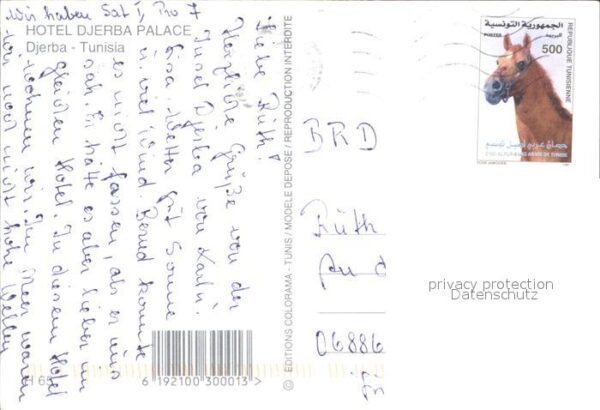 Wir haben Sat 1, Pro 7
HOTEL DJERBA PALACE
Djerba - Tunisia
Liebe Ruth!
Herzliche Grüße von der
Insel Djerba von Karin.
Lisa. Wetter gut Sonne
u. viel Wind. Bernd konnte
es nicht fassen, als er uns
sah. Er hätte es aber lieber im
gleichen Hotel. In diesem Hotel
wohnen wir. Im Meer waren
wir noch nicht hohe Wellen
© EDITIONS COLORAMA - TUNIS / MODELE DEPOSE / REPRODUCTION INTERDITE
H 65
6 192100 300013 >
BRD
Ruth
06886
الجمهورية التونسية
البريد
POSTES
500
REPUBLIQUE TUNISIENNE
حصان عربي أصيل تونسي
privacy protection
Datenschutz